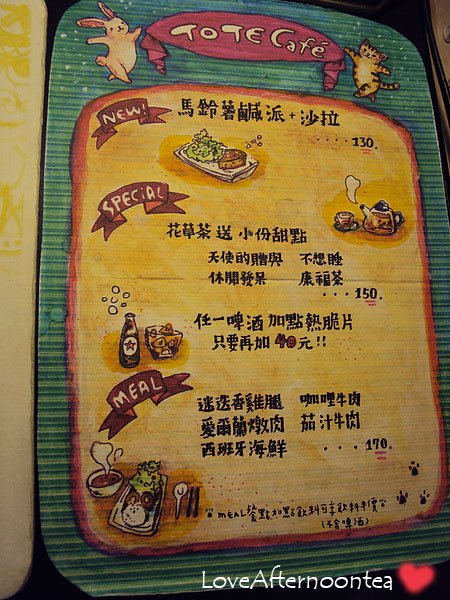 TOTE Café
NEW!
馬鈴薯鹹派+沙拉
...130.
SPECIAL
花草茶 送 小份甜點
天使的贈與 不想睡
休閒發呆 康福茶
...150.
任一啤酒加點熱脆片
只要再加40元!!
MEAL
迷迭香雞腿 咖哩牛肉
愛爾蘭燉肉 茄汁牛肉
西班牙海鮮 ...170.
"MEAL餐點加點飲料可享飲料半價"
(不含啤酒)
LoveAfternoontea